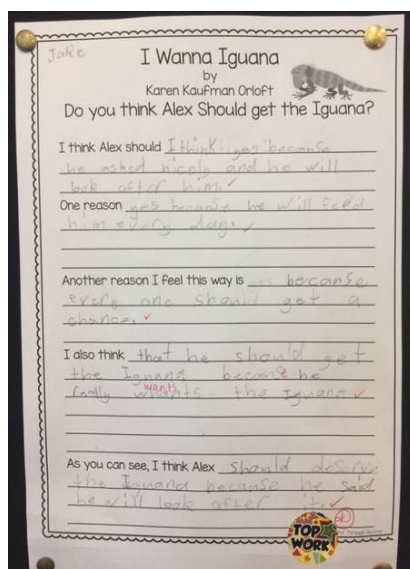 Jake
I Wanna Iguana
by
Karen Kaufman Orloft
Do you think Alex Should get the Iguana?
I think Alex should I think yes because
he asked nicely and he will
look after him.
One reason yes because he will feed
him every day.
Another reason I feel this way is yes because
every one should get a
chance.
I also think that he should get
the Iguana because he
really wants the Iguana
As you can see, I think Alex should deserve
the Iguana because he said
he will look after it.
TOP
WORK